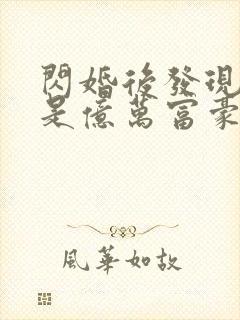 閃婚後發現
是億萬富豪
風華如故